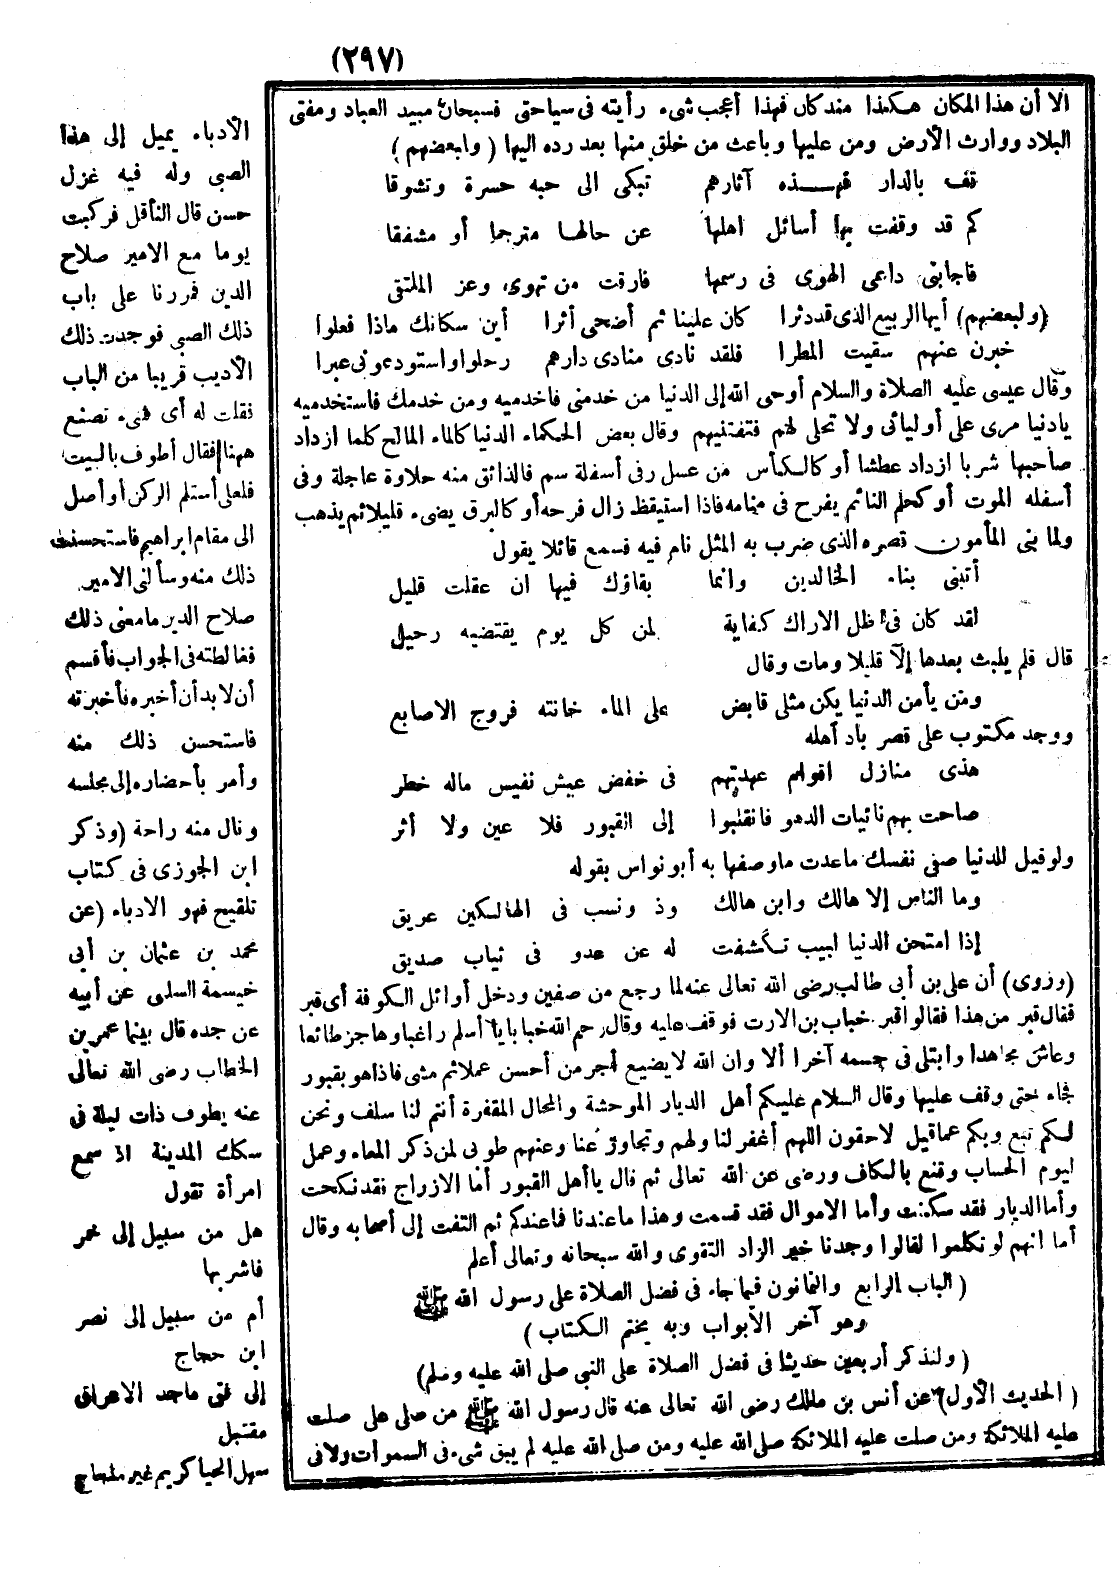 (٢٩٧)
الا أن هذا المكان هكذا منذ كان فهذا أعجب شىء رأيته فى سياحتى فسبحان مبيد العباد ومفنى
البلاد ووارث الأرض ومن عليها وباعث من خلق منها بعد رده اليها (ولبعضهم)
قف بالدار فهذه آثارهم تبكى الى حبه حسرة وتشوقا
كم قد وقفت بها أسائل اهلها عن حالها مترجما أو مشفقا
فاجابنى داعى الهوى فى رسمها فارقت من تهوى وعز الملتقى
(ولبعضهم) أيها الربع الذى قد دثرا كان علينا ثم أضحى أثرا أين سكانك ماذا فعلوا
خبرن عنهم سقيت المطرا فلقد نادى منادى دارهم رحلوا واستودعونى عبرا
وقال عيسى عليه الصلاة والسلام أوحى الله إلى الدنيا من خدمنى فاخدميه ومن خدمك فاستخدميه
يادنيا مرى على أوليائى ولا تحلى لهم فتفتنيهم وقال بعض الحكماء الدنيا كالماء المالح كلما ازداد
صاحبها شربا ازداد عطشا أو كالكأس من عسل وفى أسفله سم فالذائق منه حلاوة عاجلة وفى
أسفله الموت أو كحلم النائم يفرح فى منامه فاذا استيقظ زال فرحه أو كالبرق يضىء قليلا ثم يذهب
ولما بنى المأمون قصره الذى ضرب به المثل نام فيه فسمع قائلا يقول
أتبنى بناء الخالدين وانما بقاؤك فيها ان عقلت قليل
لقد كان فى ظل الاراك كفاية لمن كل يوم يقتضيه رحيل
قال فلم يلبث بعدها إلا قليلا ومات وقال
ومن يأمن الدنيا يكن مثلى قابض على الماء خانته فروج الاصابع
ووجد مكتوب على قصر باد أهله
هذى منازل اقوام عهدتهم فى خفض عيش نفيس ماله خطر
صاحت بهم نائبات الدهو فانقلبوا إلى القبور فلا عين ولا أثر
ولو قيل للدنيا صفى نفسك ماعدت ماوصفها به أبو نواس بقوله
وما الناس إلا هالك وابن هالك وذ ونسب فى الهالكين عريق
إذا امتحن الدنيا لبيب تكشفت له عن عدو فى ثياب صديق
(وروى) أن على بن أبى طالب رضى الله تعالى عنه لما رجع من صفين ودخل أوائل الكوفة أى قبر
فقال قبر من هذا فقالوا قبر خباب بن الارت فوقف عليه وقال رحم الله خبابا يا أسلم راغبا وهاجز طائعا
وعاش مجاهدا وابتلى فى جسمه آخرا ألا وان الله لا يضيع أجر من أحسن عملا ثم مشى فاذا هو بقبور
فجاء حتى وقف عليها وقال السلام عليكم أهل الديار الموحشة والمحال المقفرة أنتم لنا سلف ونحن
لكم تبع وبكم عما قيل لاحقون اللهم أغفر لنا ولهم وتجاوز عنا وعنهم طوبى لمن ذكر المعاد وعمل
ليوم الحساب وقنع بالكاف ورضى عن الله تعالى ثم قال ياأهل القبور أما الازراج فقد نكحت
وأما الديار فقد سكنت وأما الاموال فقد قسمت وهذا ماعندنا فاعندكم ثم التفت إلى أصحابه وقال
أما انهم لو تكلموا لقالوا وجدنا خير الزاد التقوى والله سبحانه وتعالى أعلم
(الباب الرابع والثمانون فيما جاء فى فضل الصلاة على رسول الله ﷺ
وهو آخر الأبواب وبه يختم الكتاب)
(ولنذكر أربعين حديثا فى فضل الصلاة على النبي صلى الله عليه وسلم)
(الحديث الأول) عن أنس بن مالك رضى الله تعالى عنه قال رسول الله ﷺ من صلى على صلت
عليه الملائكة ومن صلت عليه الملائكة صلى الله عليه ومن صلى الله عليه لم يبق شىء فى السموات ولا فى
الأدباء يميل إلى هذا
الصبى وله فيه غزل
حسن قال الناقل فركبت
يوما مع الامير صلاح
الدين فمررنا على باب
ذلك الصبى فوجدت ذلك
الأديب قريبا من الباب
فقلت له أى شىء تصنع
ههنا فقال أطوف بالبيت
فلعلى أستلم الركن أو أصل
الى مقام ابراهيم فاستحسنت
ذلك منه وسألنى الامير
صلاح الدين مامعنى ذلك
فغالطته فى الجواب فأقسم
أن لابد أن أخبره فأخبرته
فاستحسن ذلك منه
وأمر بأحضاره إلى مجلسه
ونال منه راحة (وذكر
ابن الجوزى فى كتاب
تلقيح فهو الادباء (عن
محمد بن عثمان بن أبى
خيسمة السلمى عن أبيه
عن جده قال بينما عمر بن
الخطاب رضى الله تعالى
عنه يطوف ذات ليلة فى
سكك المدينة اذ سمع
امرأة تقول
هل من سبيل إلى خمر
فاشربها
أم من سبيل إلى نصر
ابن حجاج
إلى فتى ماجد الاعراق
مقتبل
سهل الحيا كريم غير ملجاج